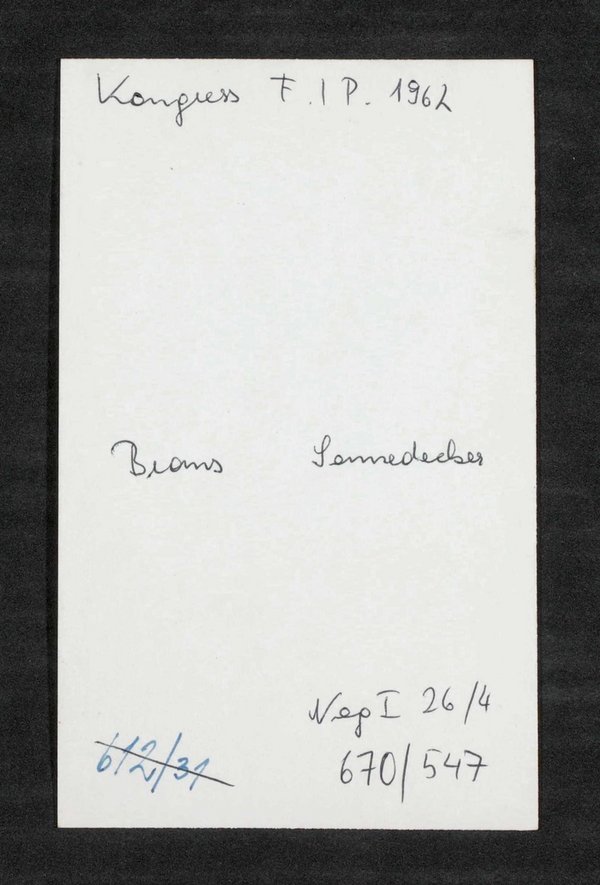 Kongress F.I P. 1962
Brans Sonnedecker
Neg I 26/4
612/31
670/547